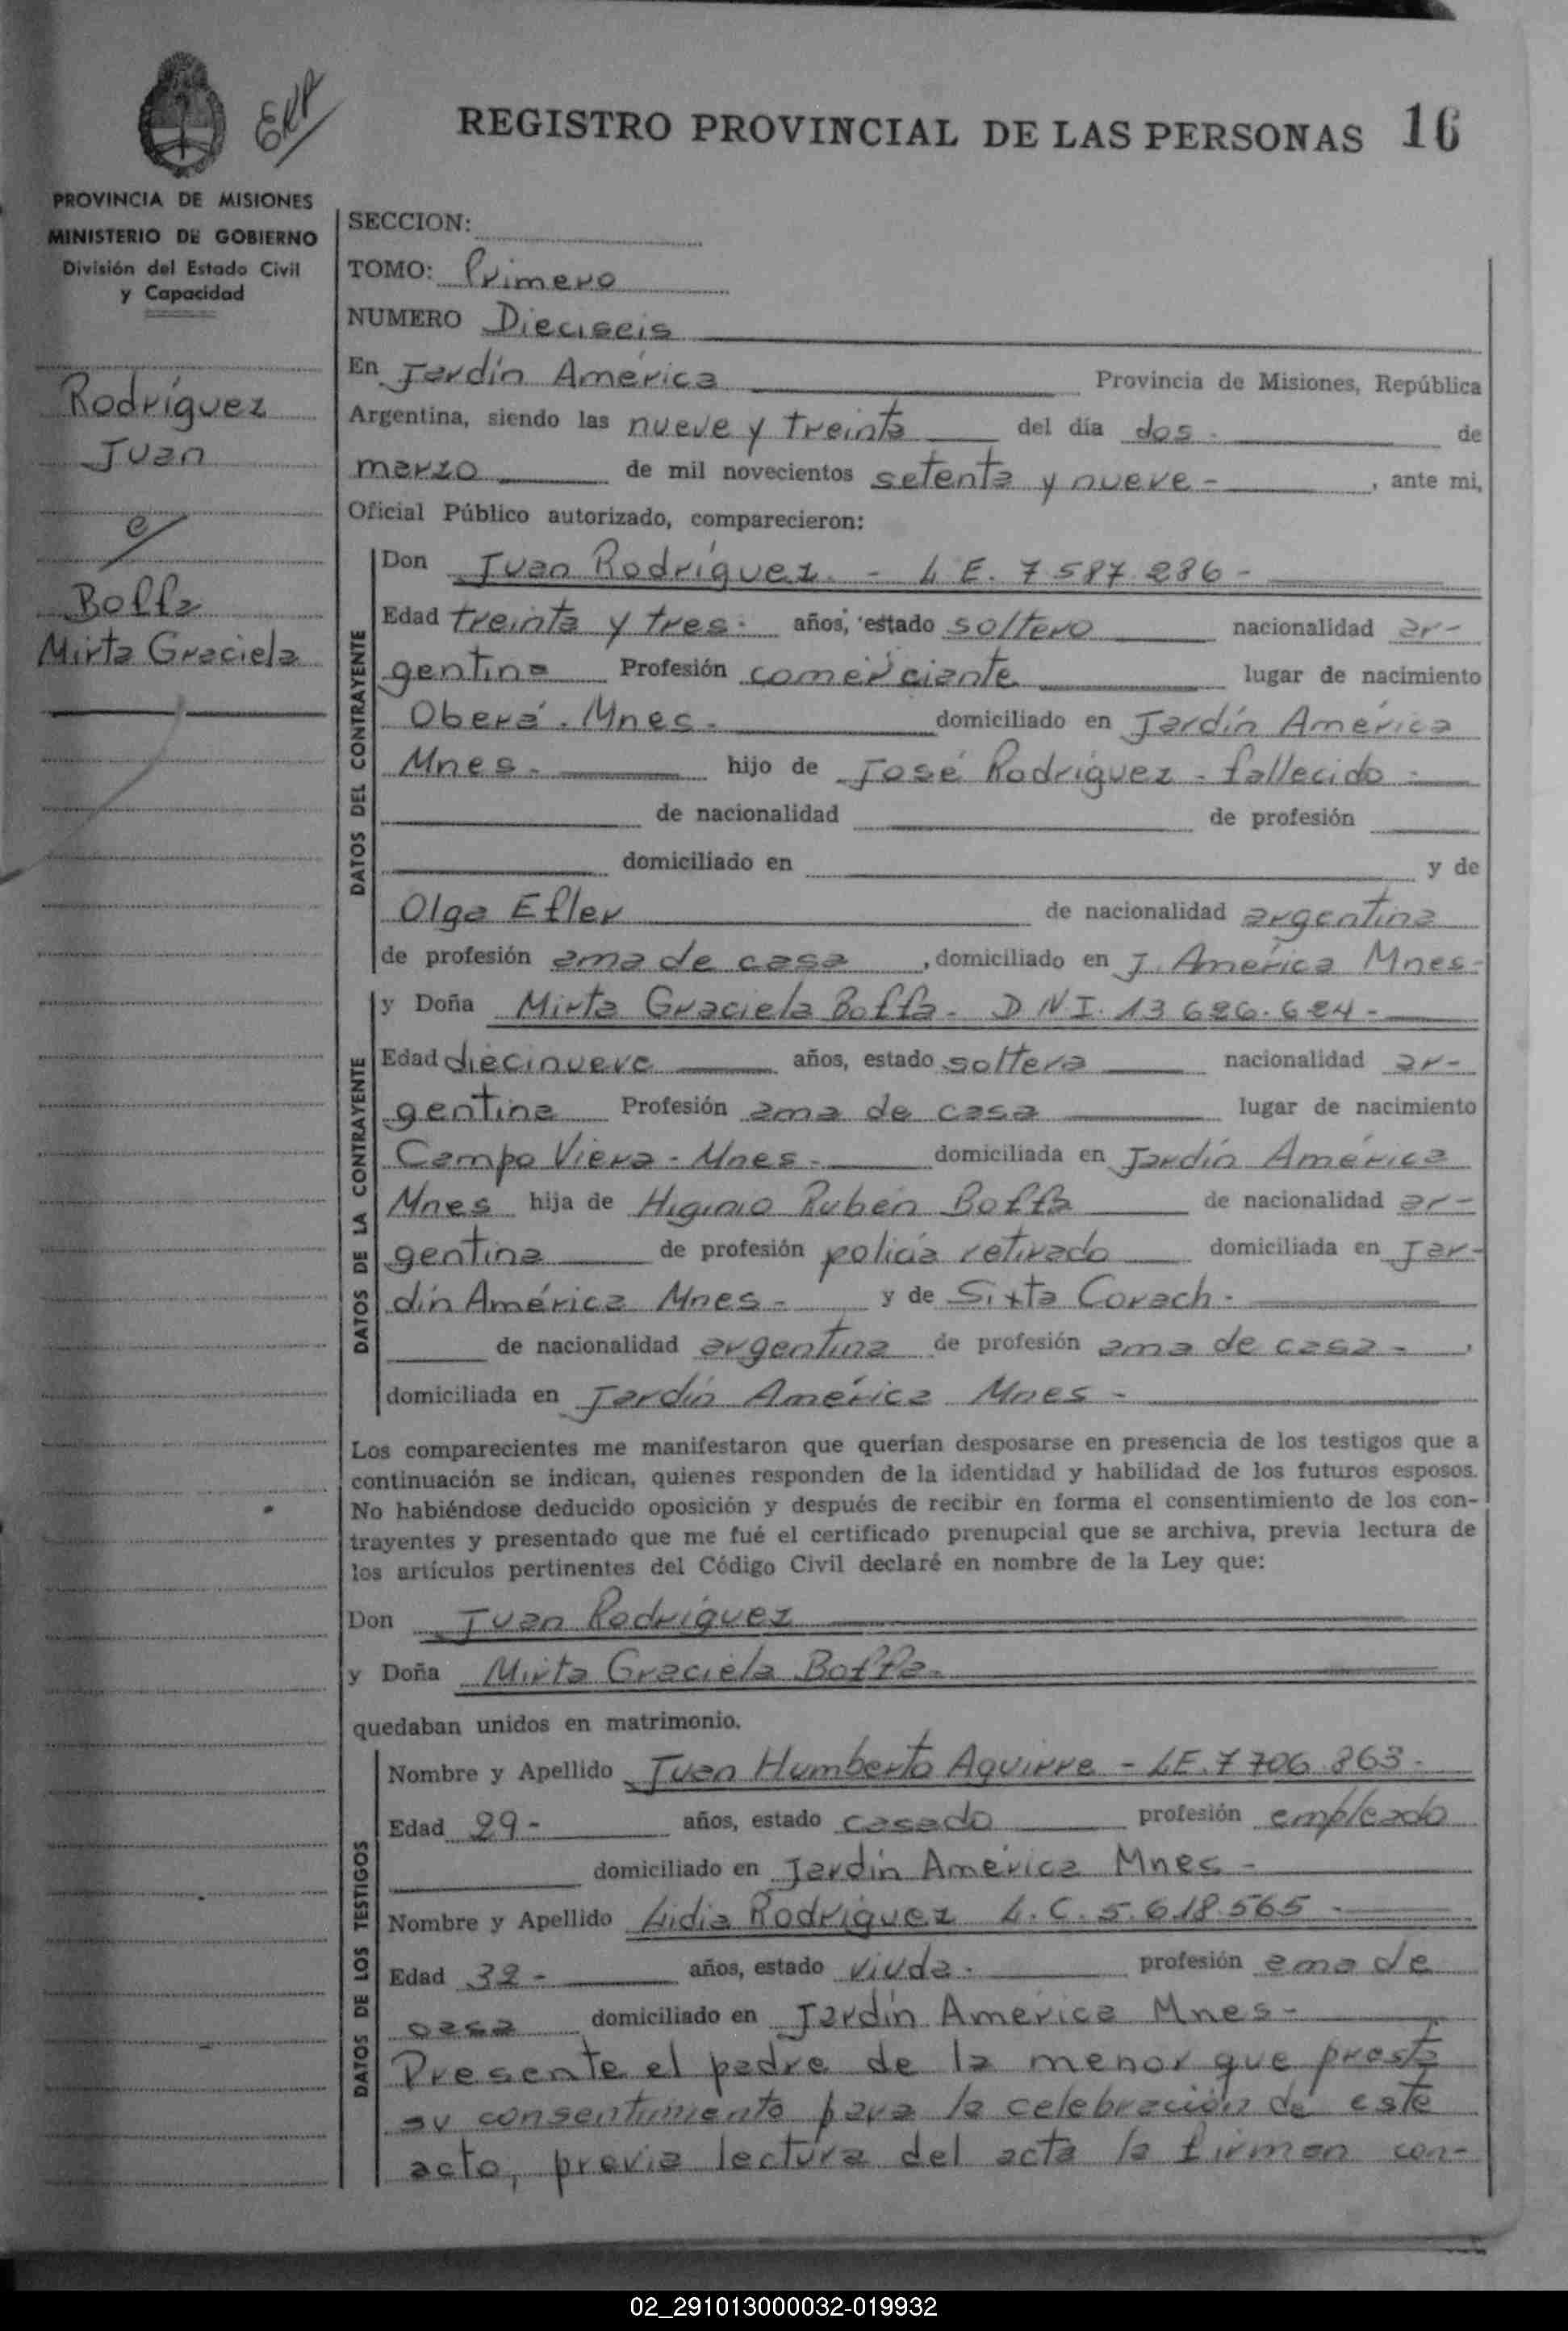 REGISTRO PROVINCIAL DE LAS PERSONAS 16
PROVINCIA DE MISIONES
MINISTERIO DE GOBIERNO
División del Estado Civil
y Capacidad
Rodríguez
Juan
c/
Boffa
Mirta Graciela
SECCION:
TOMO: Primero
NUMERO Dieciseis
En Jardín América Provincia de Misiones, República
Argentina, siendo las nueve y treinta del día dos - de
marzo de mil novecientos setenta y nueve - , ante mi,
Oficial Público autorizado, comparecieron:
DATOS DEL CONTRAYENTE
Don Juan Rodríguez - L E. 7 587 286 -
Edad treinta y tres - años, estado soltero nacionalidad ar-
gentina Profesión comerciante lugar de nacimiento
Oberá - Mnes - domiciliado en Jardín América
Mnes - hijo de José Rodríguez - fallecido -
de nacionalidad de profesión
domiciliado en y de
Olga Efler de nacionalidad argentina
de profesión ama de casa , domiciliado en J. América Mnes -
DATOS DE LA CONTRAYENTE
y Doña Mirta Graciela Boffa - D N I. 13 686.684 -
Edad diecinueve años, estado soltera nacionalidad ar-
gentina Profesión ama de casa lugar de nacimiento
Campo Viera - Mnes - domiciliada en Jardín América
Mnes hija de Higinio Rubén Boffa de nacionalidad ar-
gentina de profesión policía retirado domiciliada en Jar-
dín América Mnes - y de Sixta Corach -
de nacionalidad argentina de profesión ama de casa - ,
domiciliada en Jardín América Mnes -
Los comparecientes me manifestaron que querían desposarse en presencia de los testigos que a
continuación se indican, quienes responden de la identidad y habilidad de los futuros esposos.
No habiéndose deducido oposición y después de recibir en forma el consentimiento de los con-
trayentes y presentado que me fué el certificado prenupcial que se archiva, previa lectura de
los artículos pertinentes del Código Civil declaré en nombre de la Ley que:
Don Juan Rodríguez
y Doña Mirta Graciela Boffa -
quedaban unidos en matrimonio.
DATOS DE LOS TESTIGOS
Nombre y Apellido Juan Humberto Aguirre - LE. 7 706 863 -
Edad 29 - años, estado casado profesión empleado
domiciliado en Jardín América Mnes -
Nombre y Apellido Lidia Rodríguez L. C. 5.618.565 -
Edad 32 - años, estado viuda - profesión ama de
casa domiciliado en Jardín América Mnes -
Presente el padre de la menor que presta
su consentimiento para la celebración de este
acto, previa lectura del acta la firman con-
02_291013000032-019932